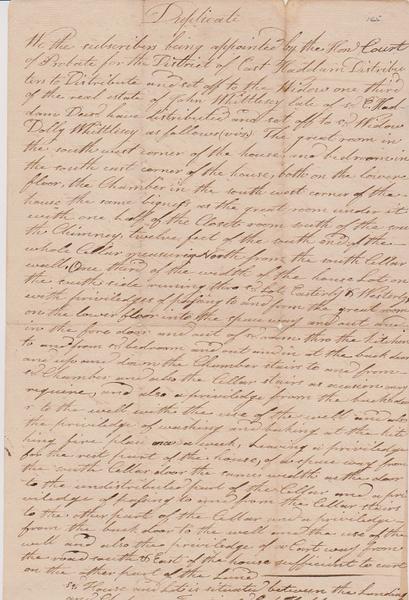 Duplicate
We the subscribers being appointed by the Hon Court
of Probate for the District of East Haddam Distribu
ters to Distribute and set off to the Widow one third
of the real estate of John Whittlesey late of sd E. Had
dam Decd have distributed and set off to sd Widow
Dolly Whittlesey as follows (viz) The great room in
the south west corner of the house, and bedroom in
the south east corner of the house, both on the lower
floor, the Chamber in the south west corner of the
house the same bigness as the great room under it
with one half of the Closets room south of the
the Chimney, twelve feet of the south end of the
whole Cellar measuring North from the south Cellar
wall, One third of the width of the house Lot on
the south side running thro sd Lot Easterly & Westerly
with priviledges of passing to and from the great room
on the lower floor into the space way and out and
in the fore door and out of sd room thro the kitchen
to and from sd bedroom and out and in at the back door
and up and down the Chamber stairs to and from
sd Chamber and also the Cellar stairs as occasion may
require, and also a priviledge from the backdoor
to the well with the use of the well and also
the priviledge of washing and baking at the kit
ching fire place once a week, leaving a priviledge
for the rest part of the house, of a space way from
the south Cellar door the same width as the door
to the undistributed part of the Cellar and a pri
viledge of passing to and from the Cellar stairs
to the other part of the Cellar and a priviledge
from the back door to the well and the use of the
well and also the priviledge of a Cart way from
the road south & East of the house sufficient to cart
on the other part of the Land
sd House and Lot is situate between the Landing